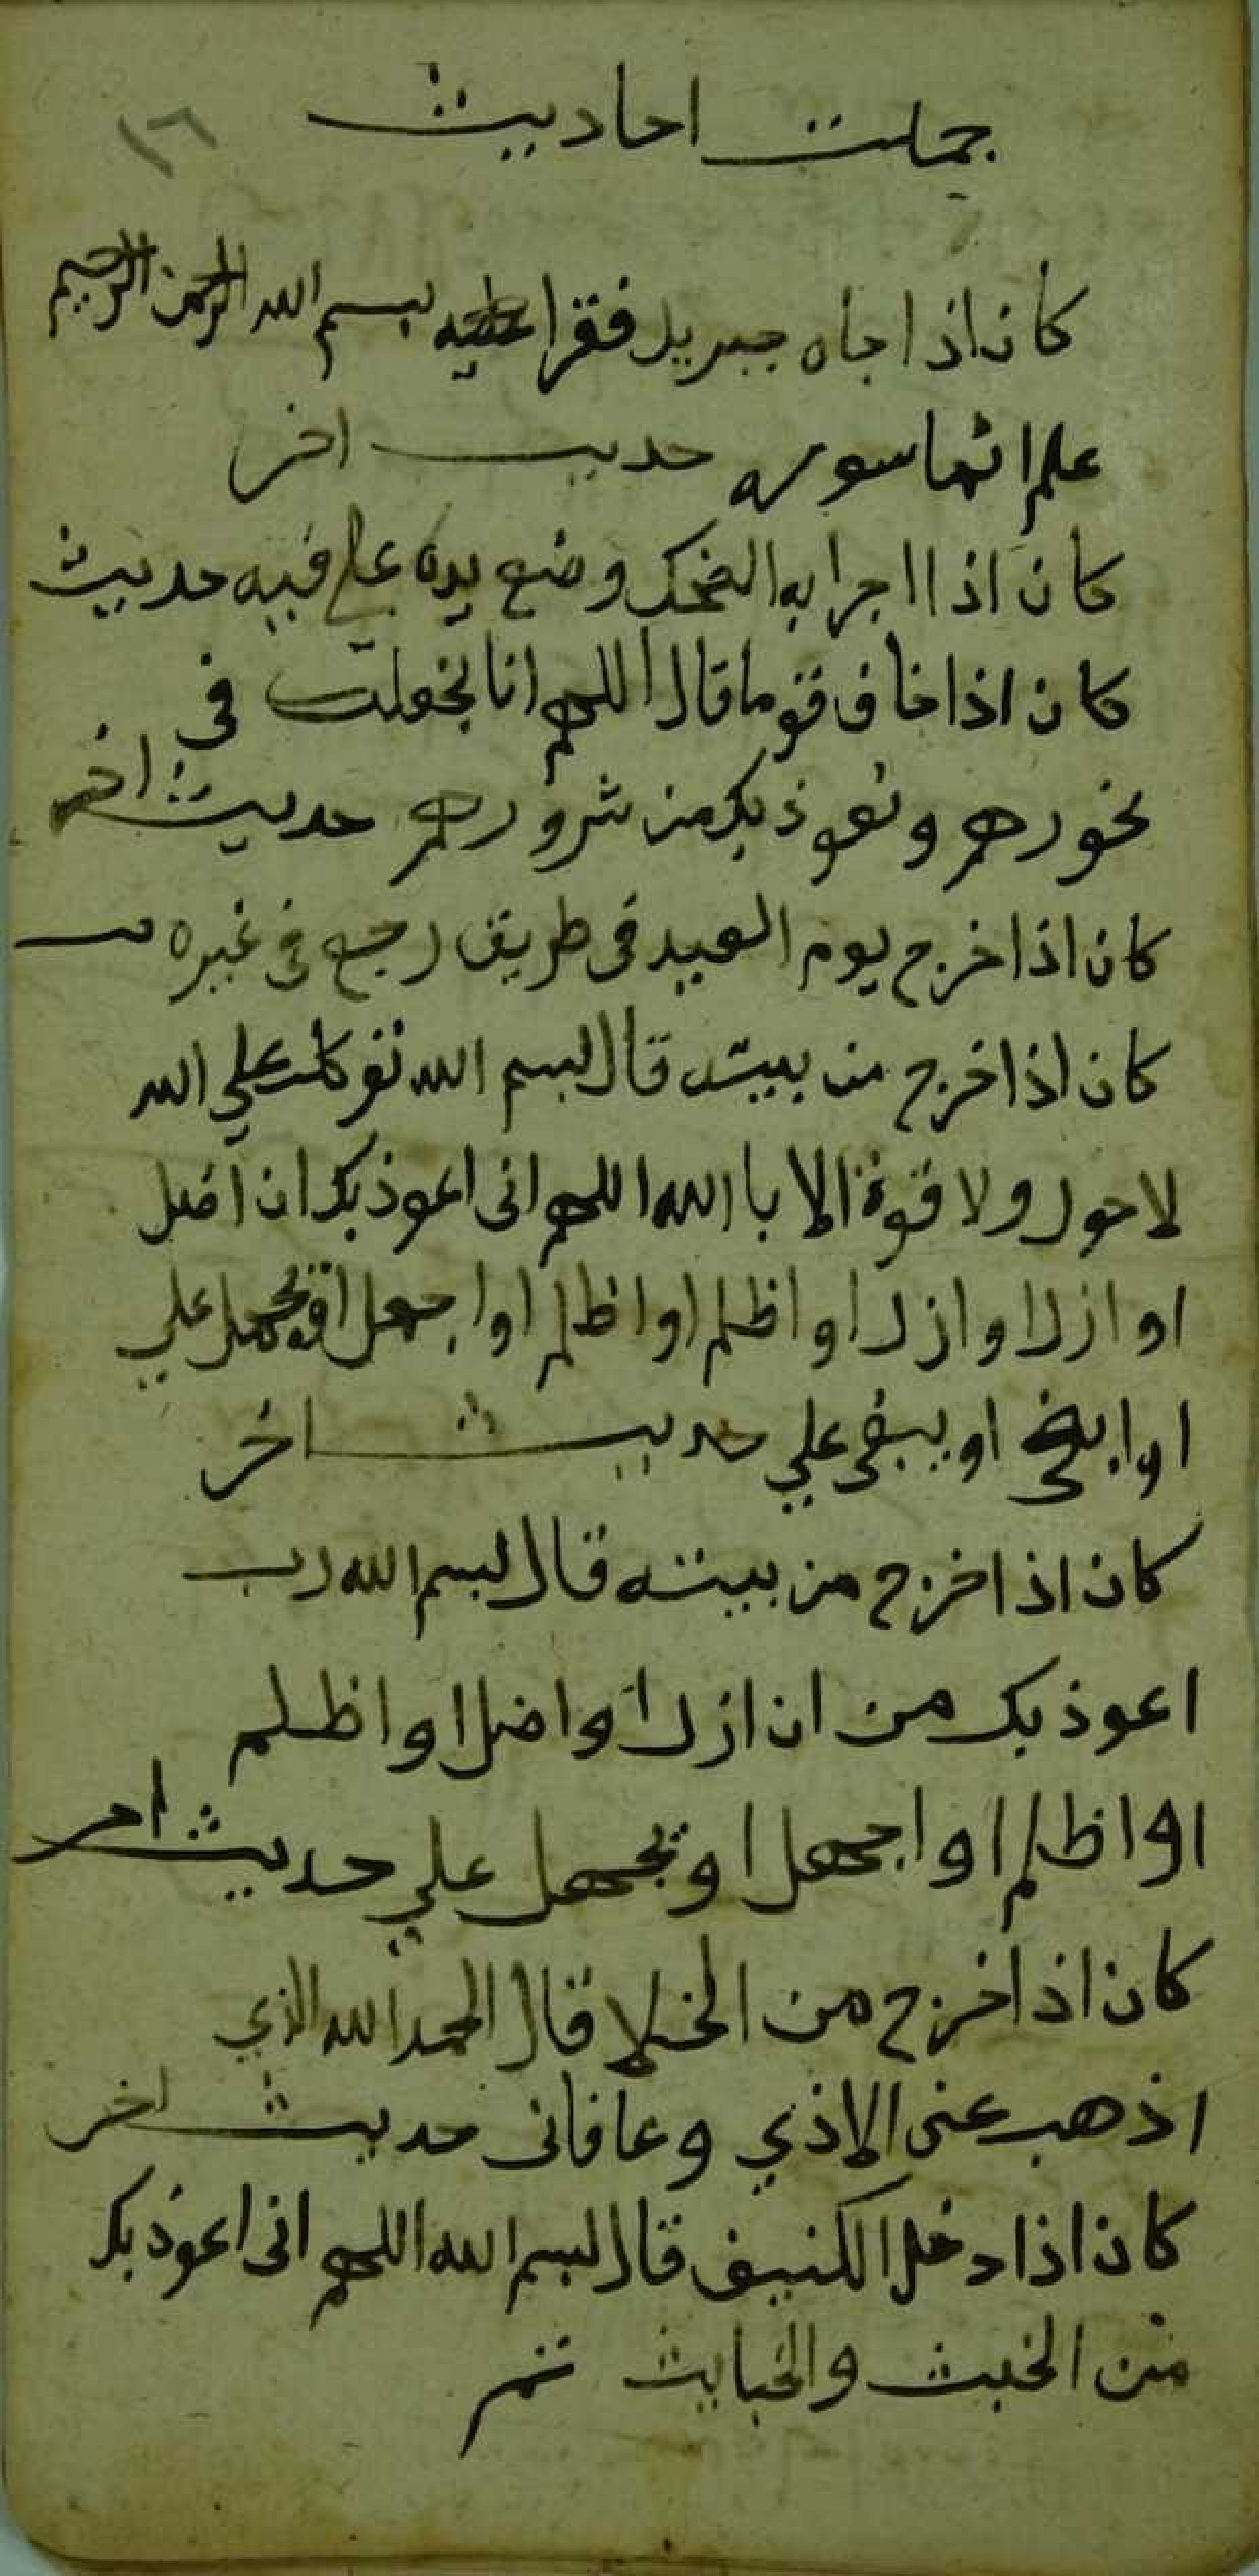 جملت احاديث
١٦
كان اذا جاه جبريل فقرا بسم الله الرحمن الرحيم
علم انها سوره حديث اخر
كان اذا اجرا به الضحك وضع يده على فيه حديث
كان اذا خاف قوما قال اللهم انا نجعلك في
نحورهم ونعوذ بك من شرورهم حديث اخر
كان اذا خرج يوم العيد في طريق رجع في غيره
كان اذا خرج من بيته قال بسم الله توكلت علي الله
لا حول ولا قوة الا باالله اللهم اني اعوذ بك ان اضل
او ازل او ازل او اظلم او اظلم او اجهل او يجهل علي
او ابغي او يبغي علي حديث اخر
كان اذا خرج من بيته قال بسم الله رب
اعوذ بك من ان ازل او اضل او اظلم
او اظلم او اجهل او يجهل علي حديث اخر
كان اذا خرج من الخلا قال الحمد الله الذي
اذهب عني الاذي وعافاني حديث اخر
كان اذا دخل الكنيف قال بسم الله اللهم اني اعوذ بك
من الخبث والخبايث تم